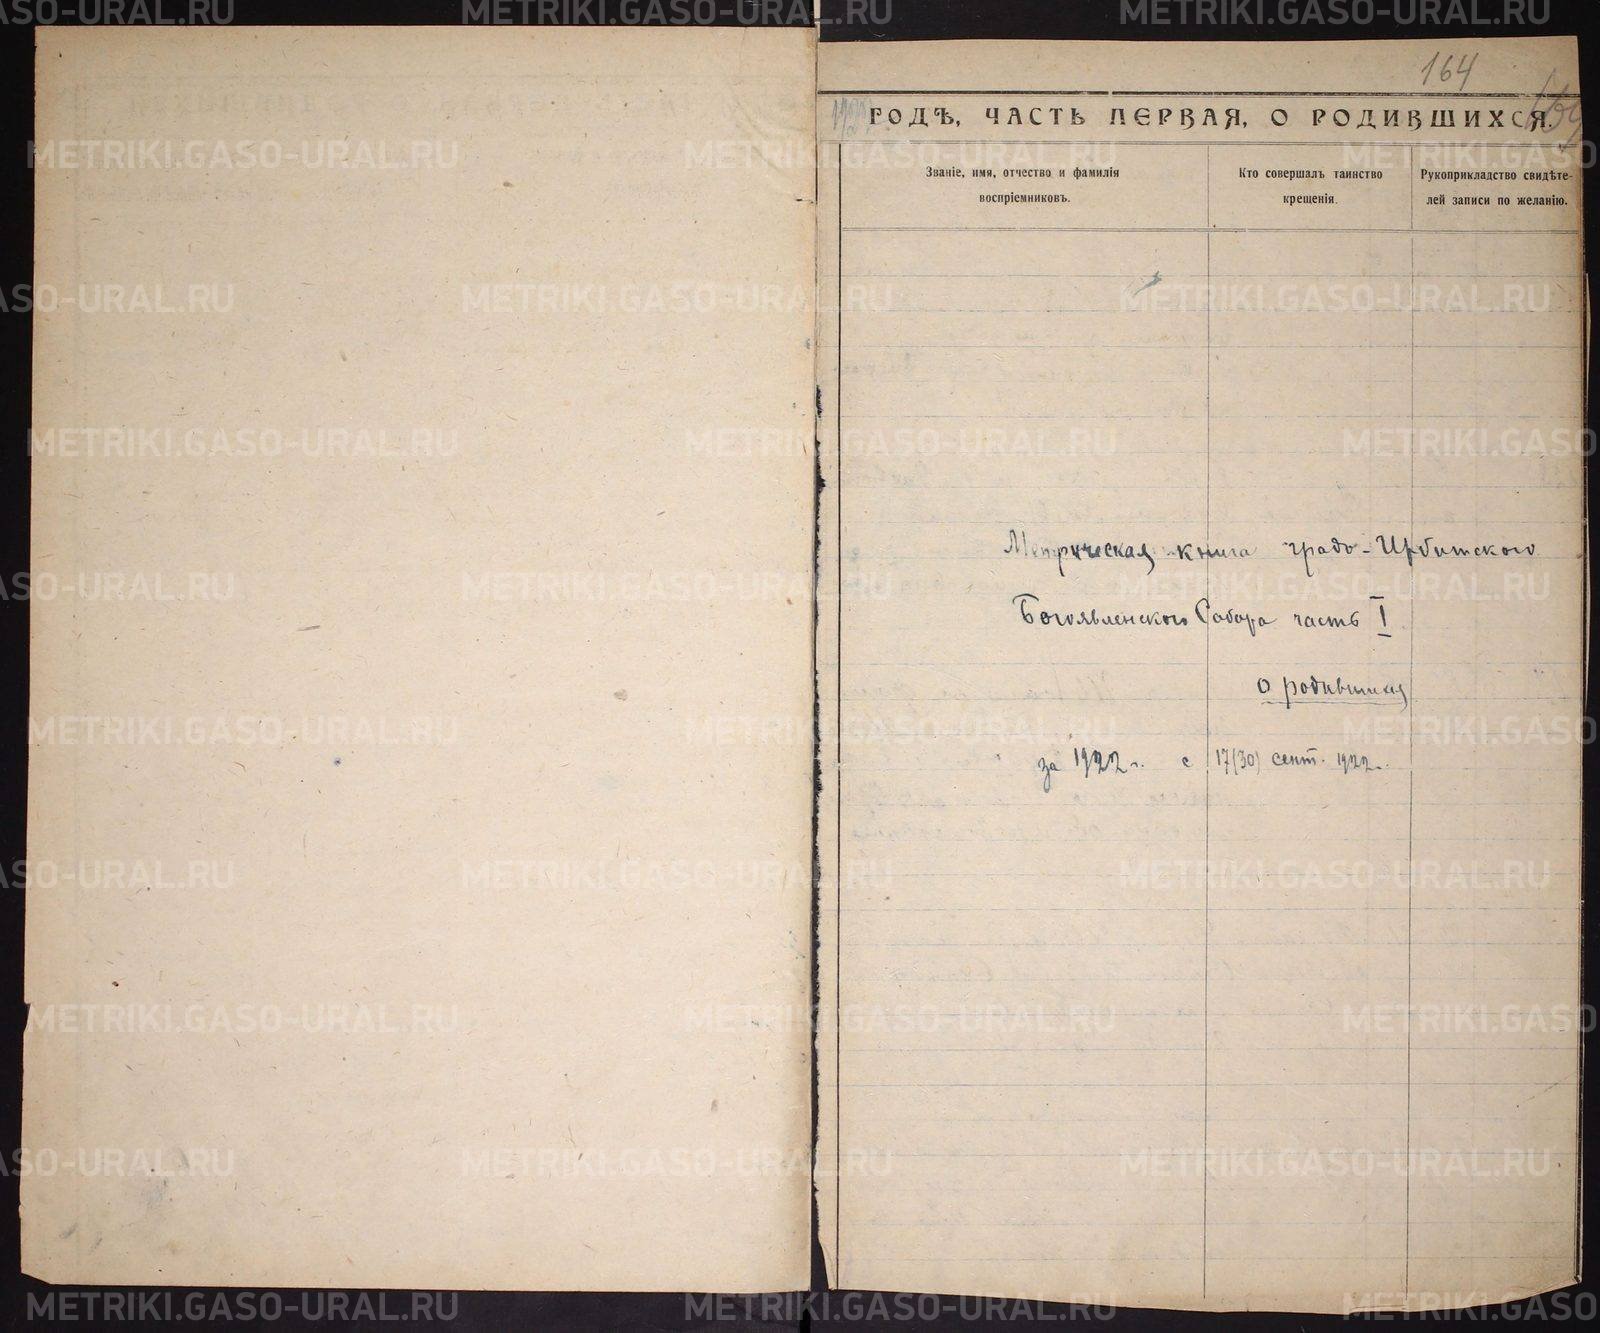 164
ГОДѢ, ЧАСТЬ ПЕРВАЯ, О РОДИВШИХСЯ.
Званіе, имя, отчество и фамилія
воспріемниковъ.
Кто совершалъ таинство
крещенія.
Рукоприкладство свидѣте-
лей записи по желанію.
Метрическая книга градо-Ирбитского
Богоявленского Собора часть I
о родившихся
за 1922 г. с 17(30) сент. 1922 г.
METRIKI.GASO-URAL.RU